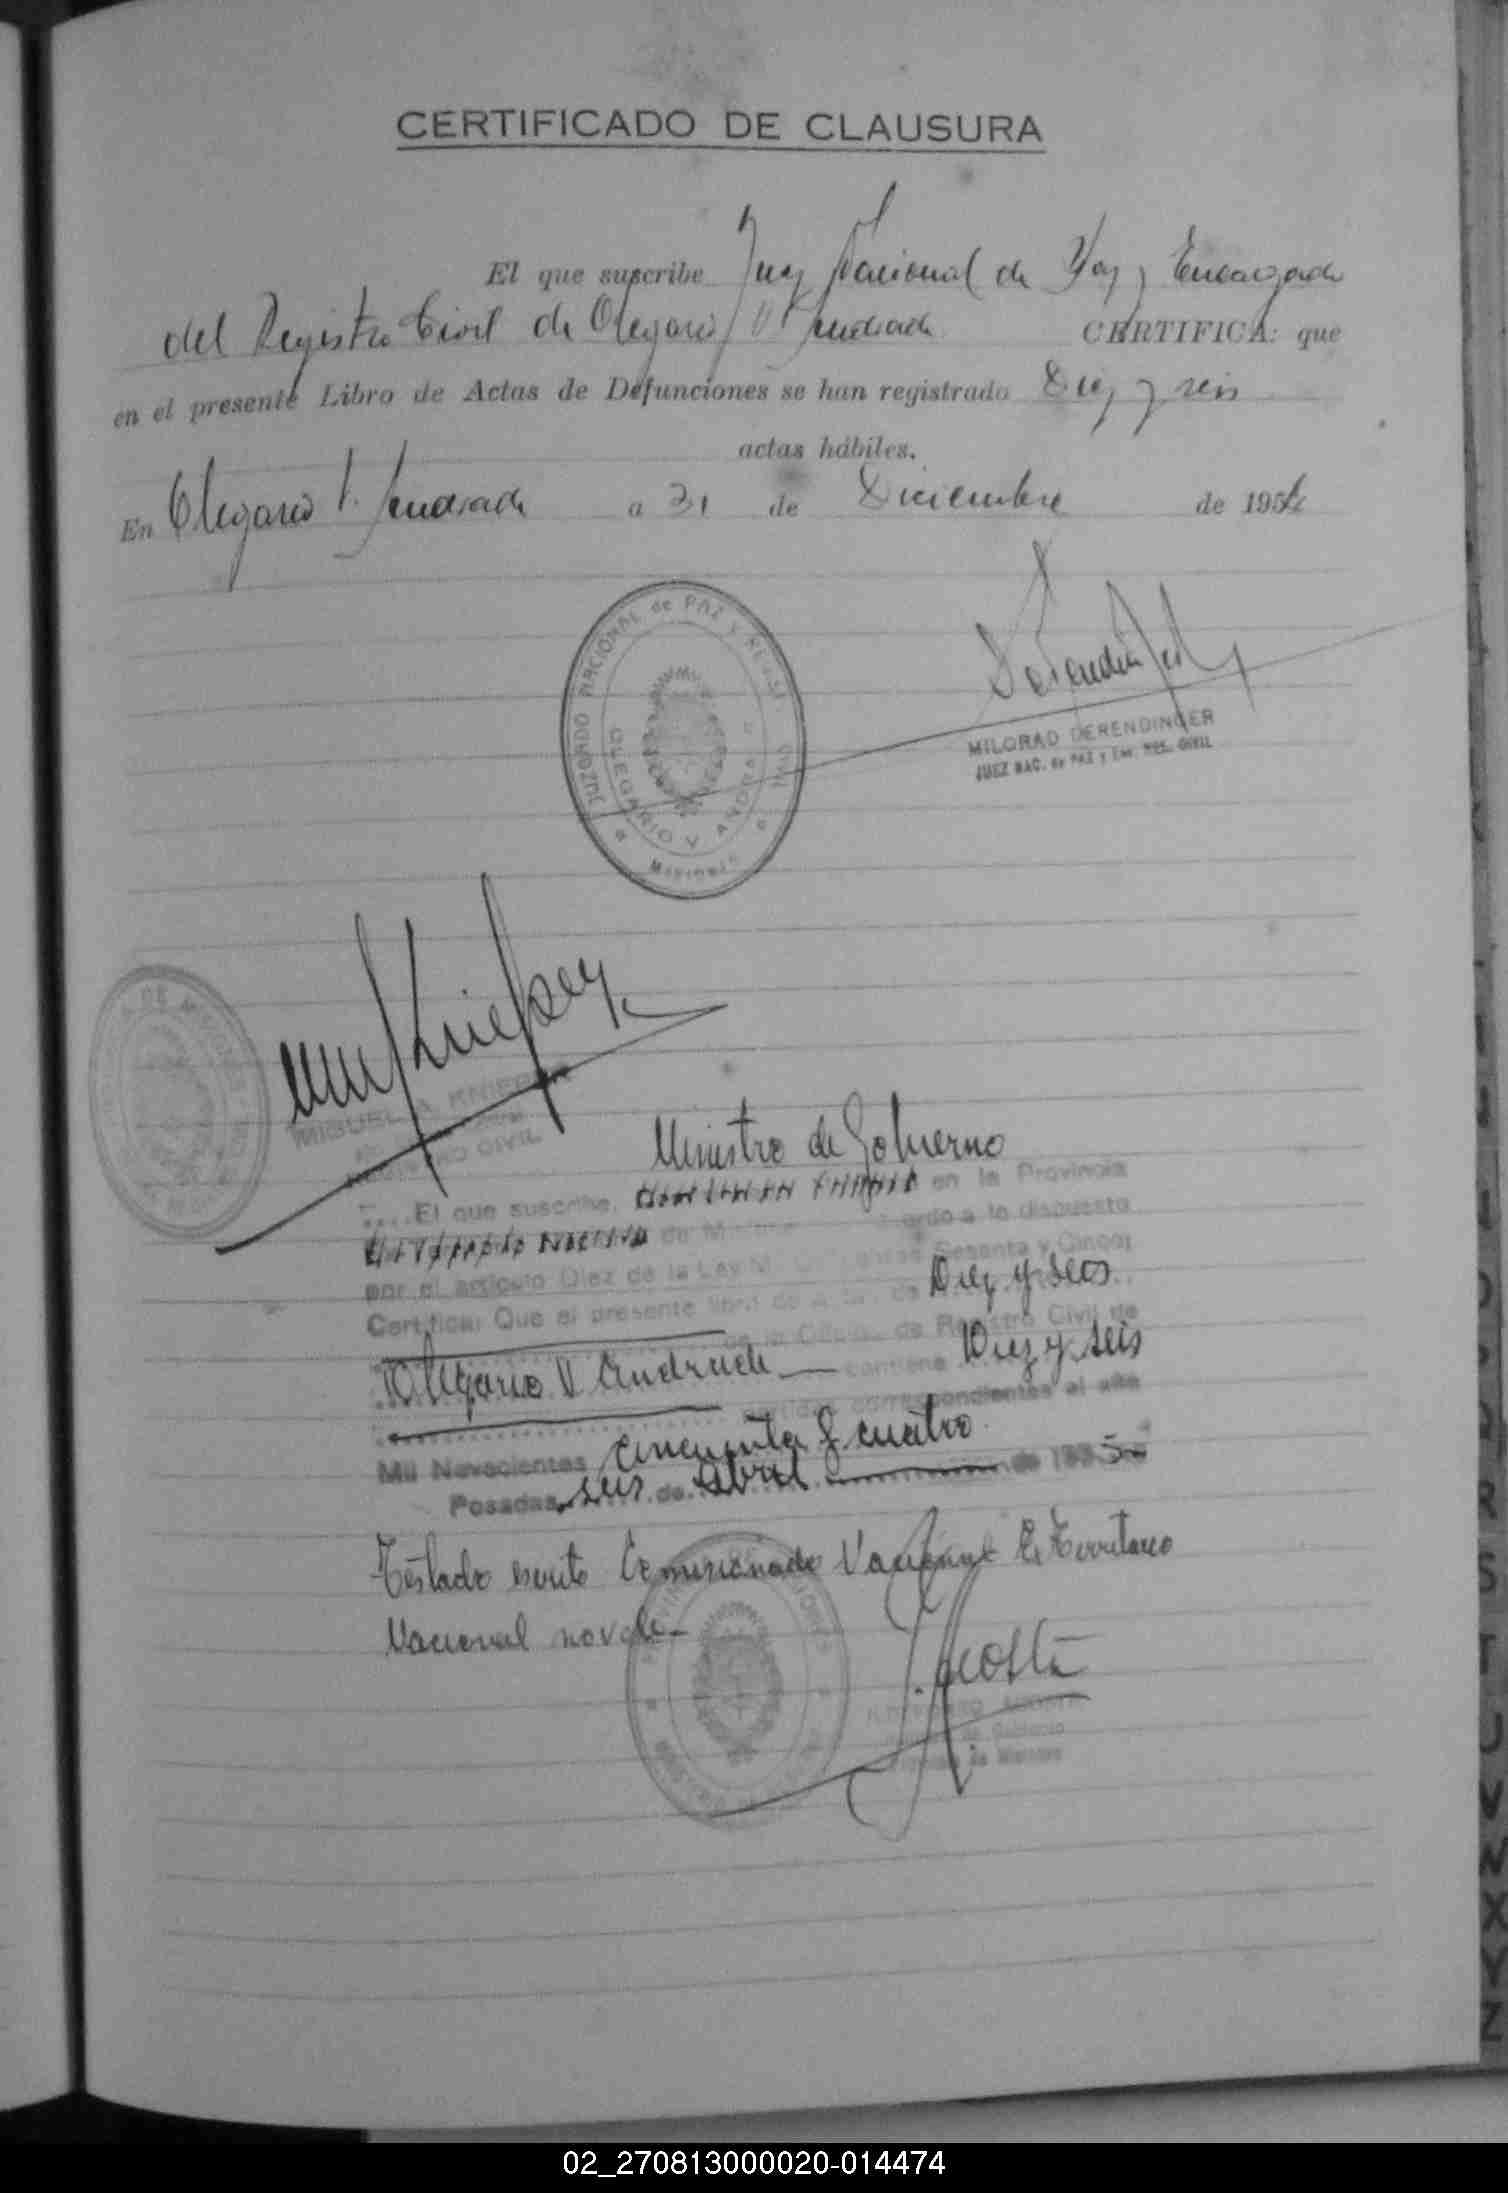 CERTIFICADO DE CLAUSURA
El que suscribe Juez Nacional de Paz y Encargado
del Registro Civil de Olegario V Andrade CERTIFICA: que
en el presente Libro de Actas de Defunciones se han registrado Diez y seis
actas hábiles.
En Olegario V. Andrade a 31 de Diciembre de 1954
JUZGADO NACIONAL de PAZ y
OLEGARIO V. ANDRADE
MISIONES
MILORAD DERENDINGER
JUEZ NAC. de PAZ y Enc. REG. CIVIL
DE MISIONES
MIGUEL A. KNIEPER
REGISTRO CIVIL
Ministro de Gobierno
El que suscribe, en la Provincia
de a lo dispuesto
por el artículo Diez de la Ley Sesenta y Cinco;
Certifica: Que el presente libro de de Diez y seis
de la de Registro Civil de
Olegario V Andrade contiene Diez y seis
partidas correspondientes al año
Mil Novecientos cincuenta y cuatro
Posadas, seis de Abril de 1955
Testado escrito Comisionado Nacional del Territorio
Nacional no vale.-
Acosta
de Gobierno
de Misiones
R
S
T
U
V
W
X
Y
Z
02_270813000020-014474